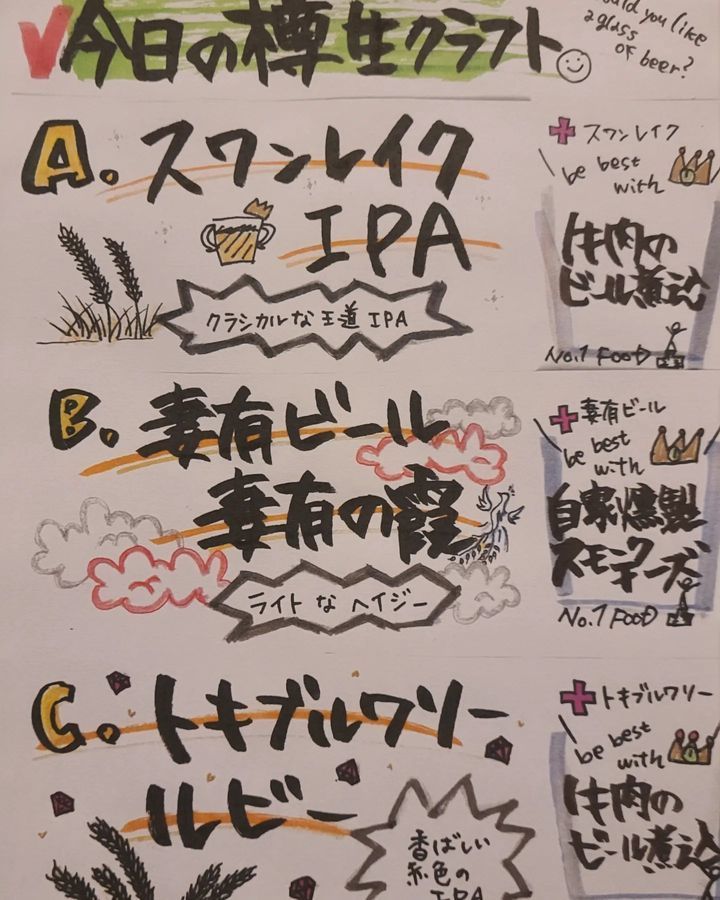 今日の樽生クラフト
would you like
a glass
of beer?
A. スワンレイク
IPA
クラシカルな王道IPA
スワンレイク
be best
with
牛肉の
ビール煮込
No.1 FOOD
B. 妻有ビール
妻有の霞
ライトなヘイジー
妻有ビール
be best
with
自家燻製
スモークチーズ
No.1 FOOD
C. トキブルワリー
ルビー
香ばしい
赤色の
IPA
トキブルワリー
be best
with
牛肉の
ビール煮込